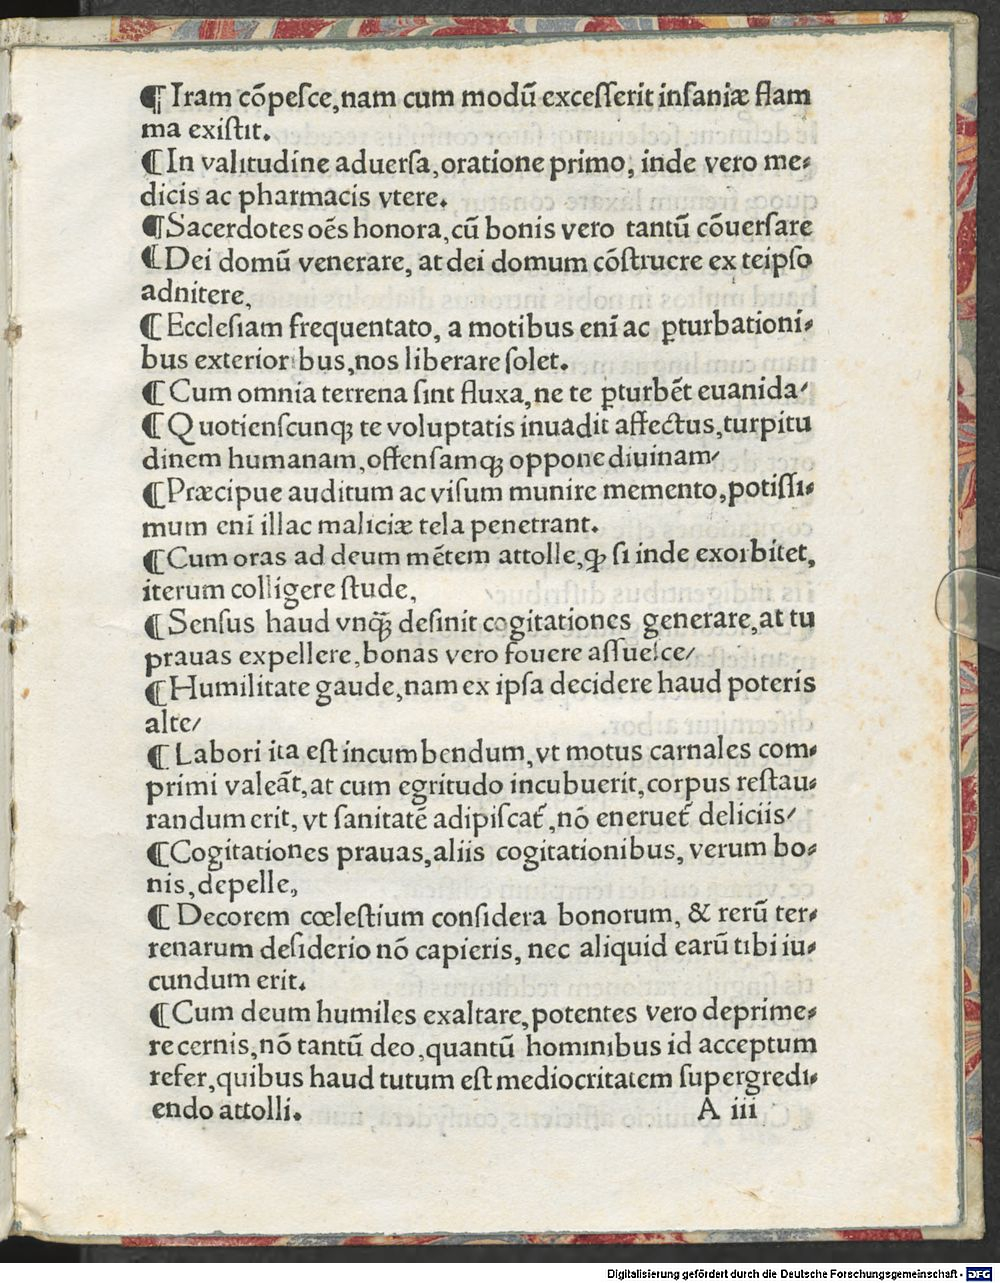 ¶ Iram cōpesce, nam cum modū excesserit insaniæ flam
ma existit.
¶ In valitudine aduersa, oratione primo, inde vero me⸗
dicis ac pharmacis vtere.
¶ Sacerdotes oēs honora, cū bonis vero tantū cōuersare
¶ Dei domū venerare, at dei domum cōstruere ex teipso
adnitere,
¶ Ecclesiam frequentato, a motibus enī ac ꝑturbationi⸗
bus exterioribus, nos liberare solet.
¶ Cum omnia terrena sint fluxa, ne te ꝑturbēt euanida/
¶ Quotienscunqꝫ te voluptatis inuadit affectus, turpitu
dinem humanam, offensamqꝫ oppone diuinam/
¶ Præcipue auditum ac visum munire memento, potissi⸗
mum enī illac maliciæ tela penetrant.
¶ Cum oras ad deum mētem attolle, ꝙ si inde exorbitet,
iterum colligere stude,
¶ Sensus haud vnqꝫ̄ desinit cogitationes generare, at tu
prauas expellere, bonas vero fouere assuesce/
¶ Humilitate gaude, nam ex ipsa decidere haud poteris
alte/
¶ Labori ita est incumbendum, vt motus carnales com⸗
primi valeāt, at cum egritudo incubuerit, corpus restau⸗
randum erit, vt sanitatē adipiscat᷑, nō eneruet᷑ deliciis/
¶ Cogitationes prauas, aliis cogitationibus, verum bo⸗
nis, depelle,
¶ Decorem cœlestium considera bonorum, & rerū ter⸗
renarum desiderio nō capieris, nec aliquid earū tibi iu⸗
cundum erit.
¶ Cum deum humiles exaltare, potentes vero deprime⸗
re cernis, nō tantū deo, quantū hominibus id acceptum
refer, quibus haud tutum est mediocritatem supergredi⸗
endo attolli. A iii
Digitalisierung gefördert durch die Deutsche Forschungsgemeinschaft - DFG